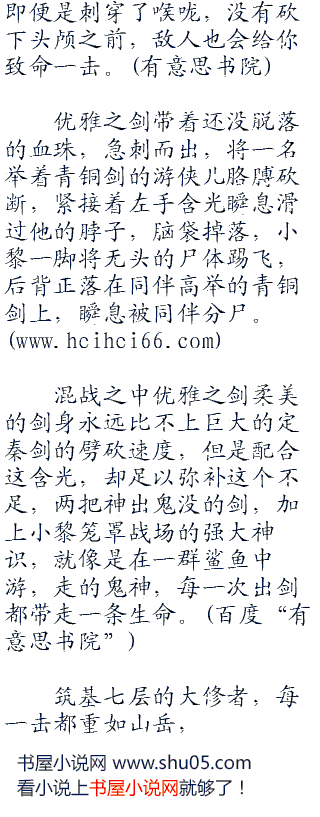 即便是刺穿了喉咙，没有砍
下头颅之前，敌人也会给你
致命一击。(有意思书院)
优雅之剑带着还没脱落
的血珠，急刺而出，将一名
举着青铜剑的游侠儿胳膊砍
断，紧接着左手含光瞬息滑
过他的脖子，脑袋掉落，小
黎一脚将无头的尸体踢飞，
后背正落在同伴高举的青铜
剑上，瞬息被同伴分尸。
(www.hcihci66.com)
混战之中优雅之剑柔美
的剑身永远比不上巨大的定
秦剑的劈砍速度，但是配合
这含光，却足以弥补这个不
足，两把神出鬼没的剑，加
上小黎笼罩战场的强大神
识，就像是在一群鲨鱼中
游，走的鬼神，每一次出剑
都带走一条生命。(百度“有
意思书院”)
筑基七层的大修者，每
一击都重如山岳，
书屋小说网 www.shu05.com
看小说上书屋小说网就够了！